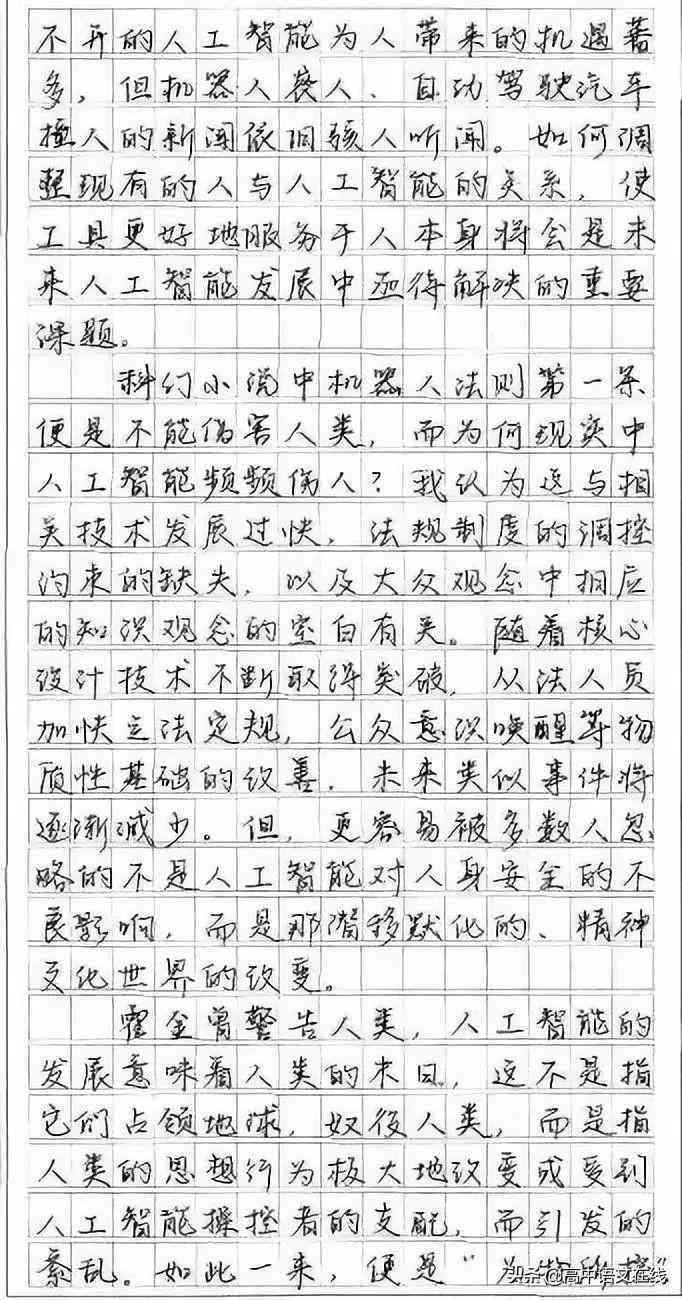 不开的人工智能为人带来的机遇蕃
多，但机器人丧人、自动驾驶汽车
撞人的新闻依旧骇人听闻。如何调
整现有的人与人工智能的关系，使
工具更好地服务于人本身将会是未
来人工智能发展中亟待解决的重要
课题。
科幻小说中机器人法则第一条
便是不能伤害人类，而为何现实中
人工智能频频伤人？我认为这与相
关技术发展过快，法规制度的调控
约束的缺失，以及大众观念中相应
的知识观念的空白有关。随着核心
设计技术不断取得突破，从法人员
加快立法定规，公众意识唤醒等物
质性基础的改善，未来类似事件将
逐渐减少。但，更容易被多数人忽
略的不是人工智能对人身安全的不
良影响，而是那潜移默化的、精神
文化世界的改变。
霍金曾警告人类，人工智能的
发展意味着人类的末日，这不是指
它们占领地球，奴役人类，而是指
人类的思想行为极大地改变或受到
人工智能操控者的支配，而引发的
紊乱。如此一来，便是“为物所控”
头条@高中语文在线